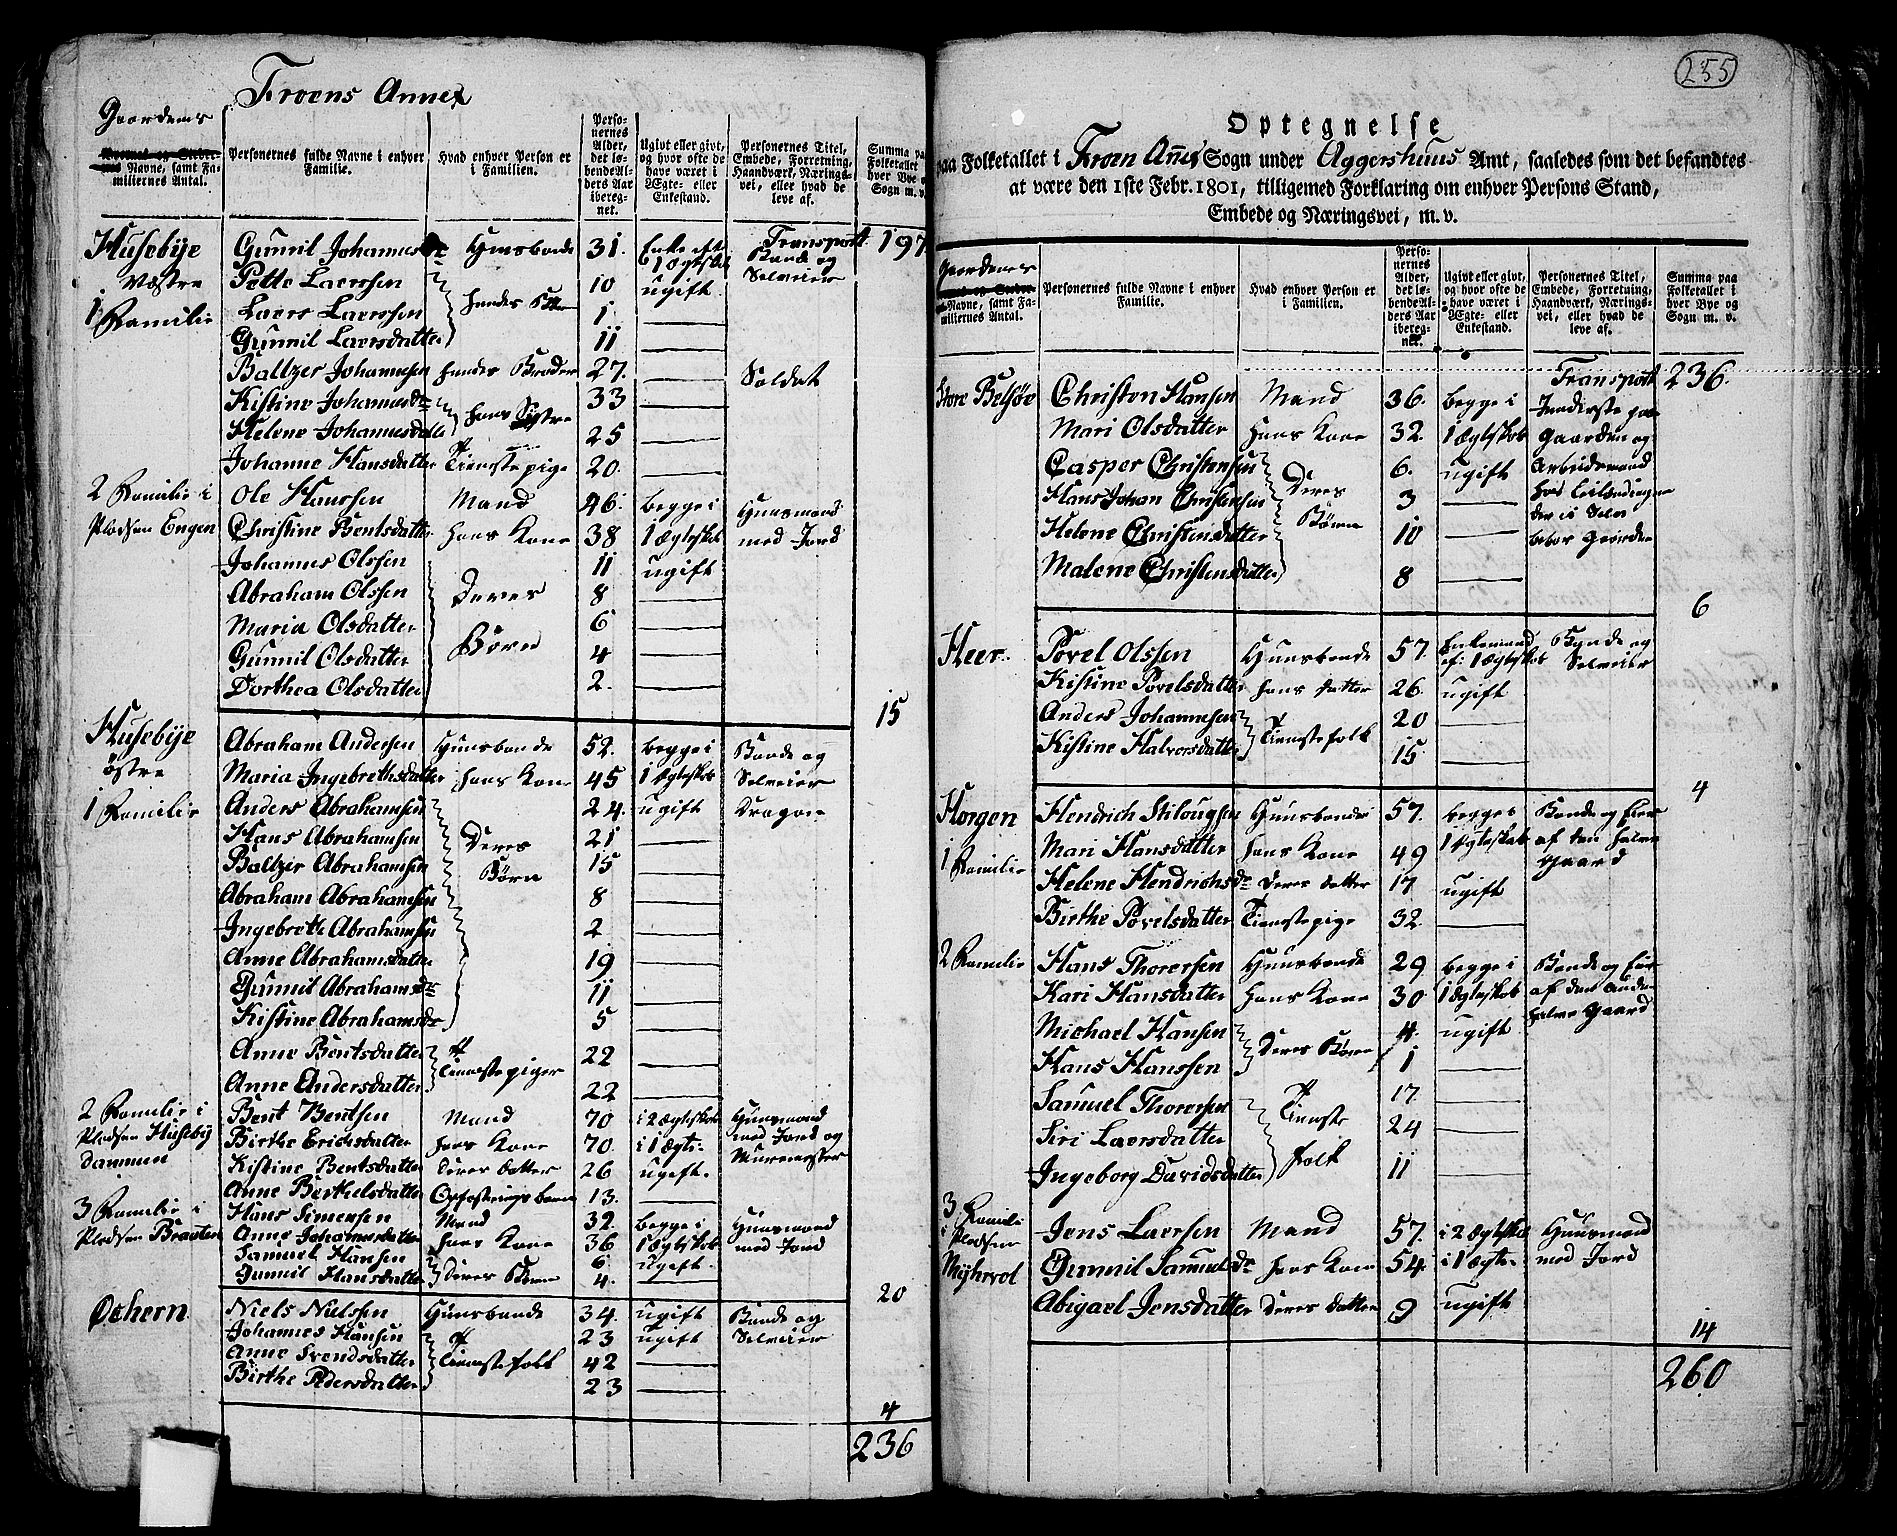 Froens Annex
Gaardenes
Navne, samt Familiernes Antal.
Personernes fulde Navne i enhver Familie.
Hvad enhver Person er i Familien.
Personernes Alder, det løbende Alders Aar iberegnet.
Ugivt eller givt, og hvor ofte de have været i Ægte- eller Enkestand.
Personernes Titel, Embede, Forretning, Haandværk, Næringsvei, eller hvad de leve af.
Summa paa Folketallet i hver Bye og Sogn m. v.
Transport 197
Husebije Gunnil Johannesdr Huusbonde 31. Enke eft 1 Ægteskab Bonde og
Væstre Pette Laerssen 10 ugift Selveier
1 Familie Laers Laerssen hendes Børn 1
Gunnil Laersdatter 11
Baltzer Johannesen hendes Broder 27. Soldat
Kistine Johannesdr hans Søstre 33
Helene Johannesdatter 25
Johanne Hansdatter Tienestepige 20.
2 Familie i Ole Hanssen Mand 46. begge i Huusmand
Pladsen Engen Christine Bentsdatter hans Kone 38 1 ægteskab med Jord
Johannes Olssen 11 ugift
Abraham Olssen Deres 8
Maria Olsdatter 6
Gunnil Olsdatter Børn 4
Dorthea Olsdatter 2.
15
Husebije Abraham Andersen Huusbonde 52. begge i Bonde og
østre Maria Ingebrethsdatter hans Kone 45 1 ægteskab Selveier
1 Familie Anders Abrahamsen 24. ugift Dragon
Hans Abrahamsen Deres 21
Baltzer Abrahamsen Børn 15
Abraham Abrahamsen 8
Ingebreth Abrahamsen 2
Anne Abrahamsdatter 19
Gunnil Abrahamsdr 11
Kistine Abrahamsdr 5
Anne Bentsdatter Tienestepiger 22
Anne Andersdatter 22
2 Familie i Bent Bentsen Mand 70 i 2 ægteskab Huusmand
Pladsen Huseby Birthe Erichsdatter hans Kone 70. i 1 ægt: med Jord og
dammen Kistine Bentsdatter Deres datter 26 ugift. Muremester
Anne Berthelsdatter Opfostringsbarn 13.
3 Familie i Hans Simensen Mand 32. begge i Huusmand
Pladsen Braaten Anne Johannesdatter hans Kone 36 1 ægteskab med Jord
Samuel Hansen Deres Børn 6 ugift.
Gunnil Hansdatter 4.
20
Ochern Niels Nielsen Huusbonde 34. ugift Bonde og
Johannes Hansen Tienestefolk 23 ugift Selveier
Anne Svendsdatter 42
Birthe Pedersdatter 23
4
236
255
Optegnelse
paa Folketallet i Froen Annex Sogn under Aggershuus Amt, saaledes som det befandtes
at være den 1ste Febr. 1801, tilligemed Forklaring om enhver Persons Stand,
Embede og Næringsvei, m. v.
Gaardenes
Navne, samt Familiernes Antal.
Personernes fulde Navne i enhver Familie.
Hvad enhver Person er i Familien.
Personernes Alder, det løbende Alders Aar iberegnet.
Ugivt eller givt, og hvor ofte de have været i Ægte- eller Enkestand.
Personernes Titel, Embede, Forretning, Haandværk, Næringsvei, eller hvad de leve af.
Summa paa Folketallet i hver Bye og Sogn m. v.
Transport 236.
Store Belsøe Christen Hansen Mand 36. begge i Inderste paa
Mari Olsdatter hans Kone 32. 1 ægteskab Gaarden og
Casper Christensen Deres 6. ugift Arbeidsmand
Hans Johan Christensen Børn 3 hos
Helene Christensdatter 10
Malene Christensdatter 8
6
Heer. Povel Olssen Huusbonde 57. Enkemand af: 1 ægteskab Bonde og
Kistine Povelsdatter hans datter 26. ugift Selveier
Anders Johannesen Tienestefolk 20
Kistine Halvorsdatter 15
4
Horgen Hendrich Stilougsen Huusbonde 57. begge i Bonde og Eier
1 Familie Mari Hansdatter hans Kone 49 1 ægteskab af den halve
Helene Hendrichsdr Deres datter 17 ugift gaard
Birthe Povelsdatter Tienestepige 32.
2 Familie Hans Thorersen Huusbonde 29 begge i Bonde og Eier
Kari Hansdatter hans Kone 30 1 ægteskab af den anden
Michael Hansen Deres Børn 4 ugift halve gaard
Hans Hanssen 1
Samuel Thorersen Tieneste 17.
Siri Laersdatter folk 24
Ingeborg Davidsdatter 11
3 Familie
i Pladsen Jens Laersen Mand 57. i 2 ægteskab Huusmand
Myhrvol Gunnil Samuelsdr hans Kone 54. i 1 ægt: med Jord
Abigael Jensdatter Deres datter 9 ugift
14
260